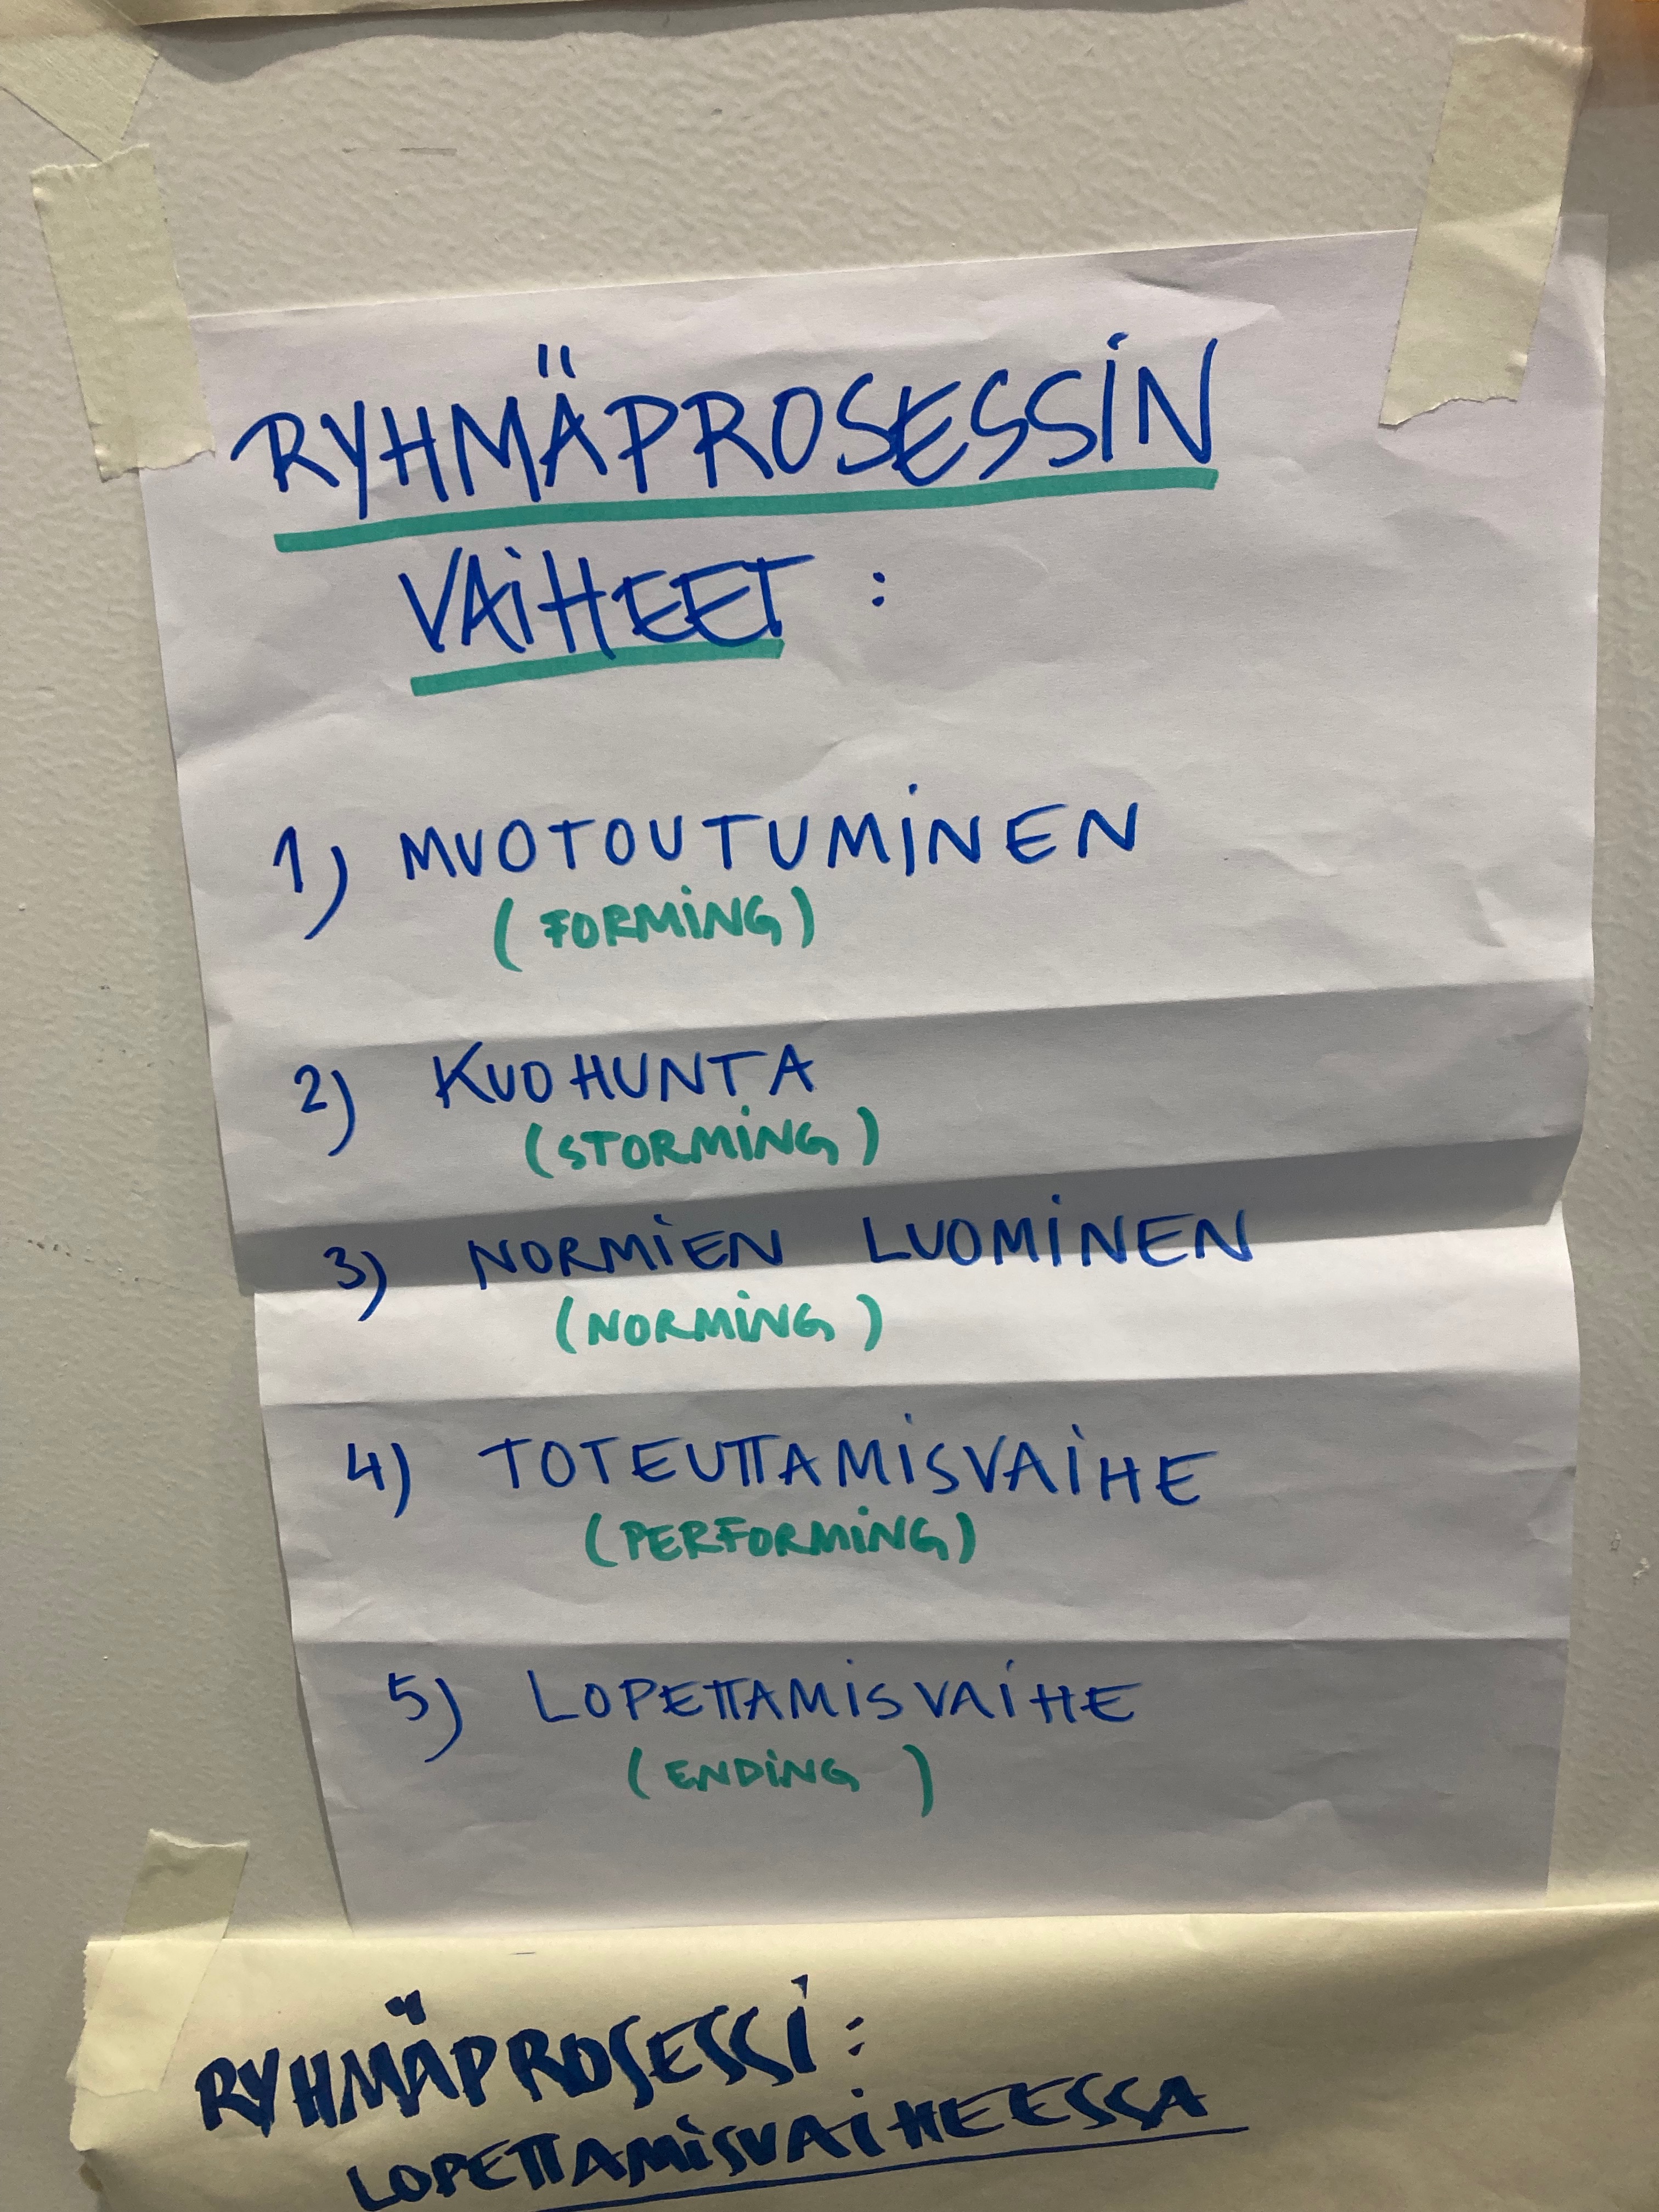 RYHMÄPROSESSIN
VAIHEET :
1) MUOTOUTUMINEN
(FORMING)
2) KUOHUNTA
(STORMING)
3) NORMIEN LUOMINEN
(NORMING)
4) TOTEUTTAMISVAIHE
(PERFORMING)
5) LOPETTAMISVAIHE
(ENDING)
RYHMÄPROSESSI:
LOPETTAMISVAIHEESSA